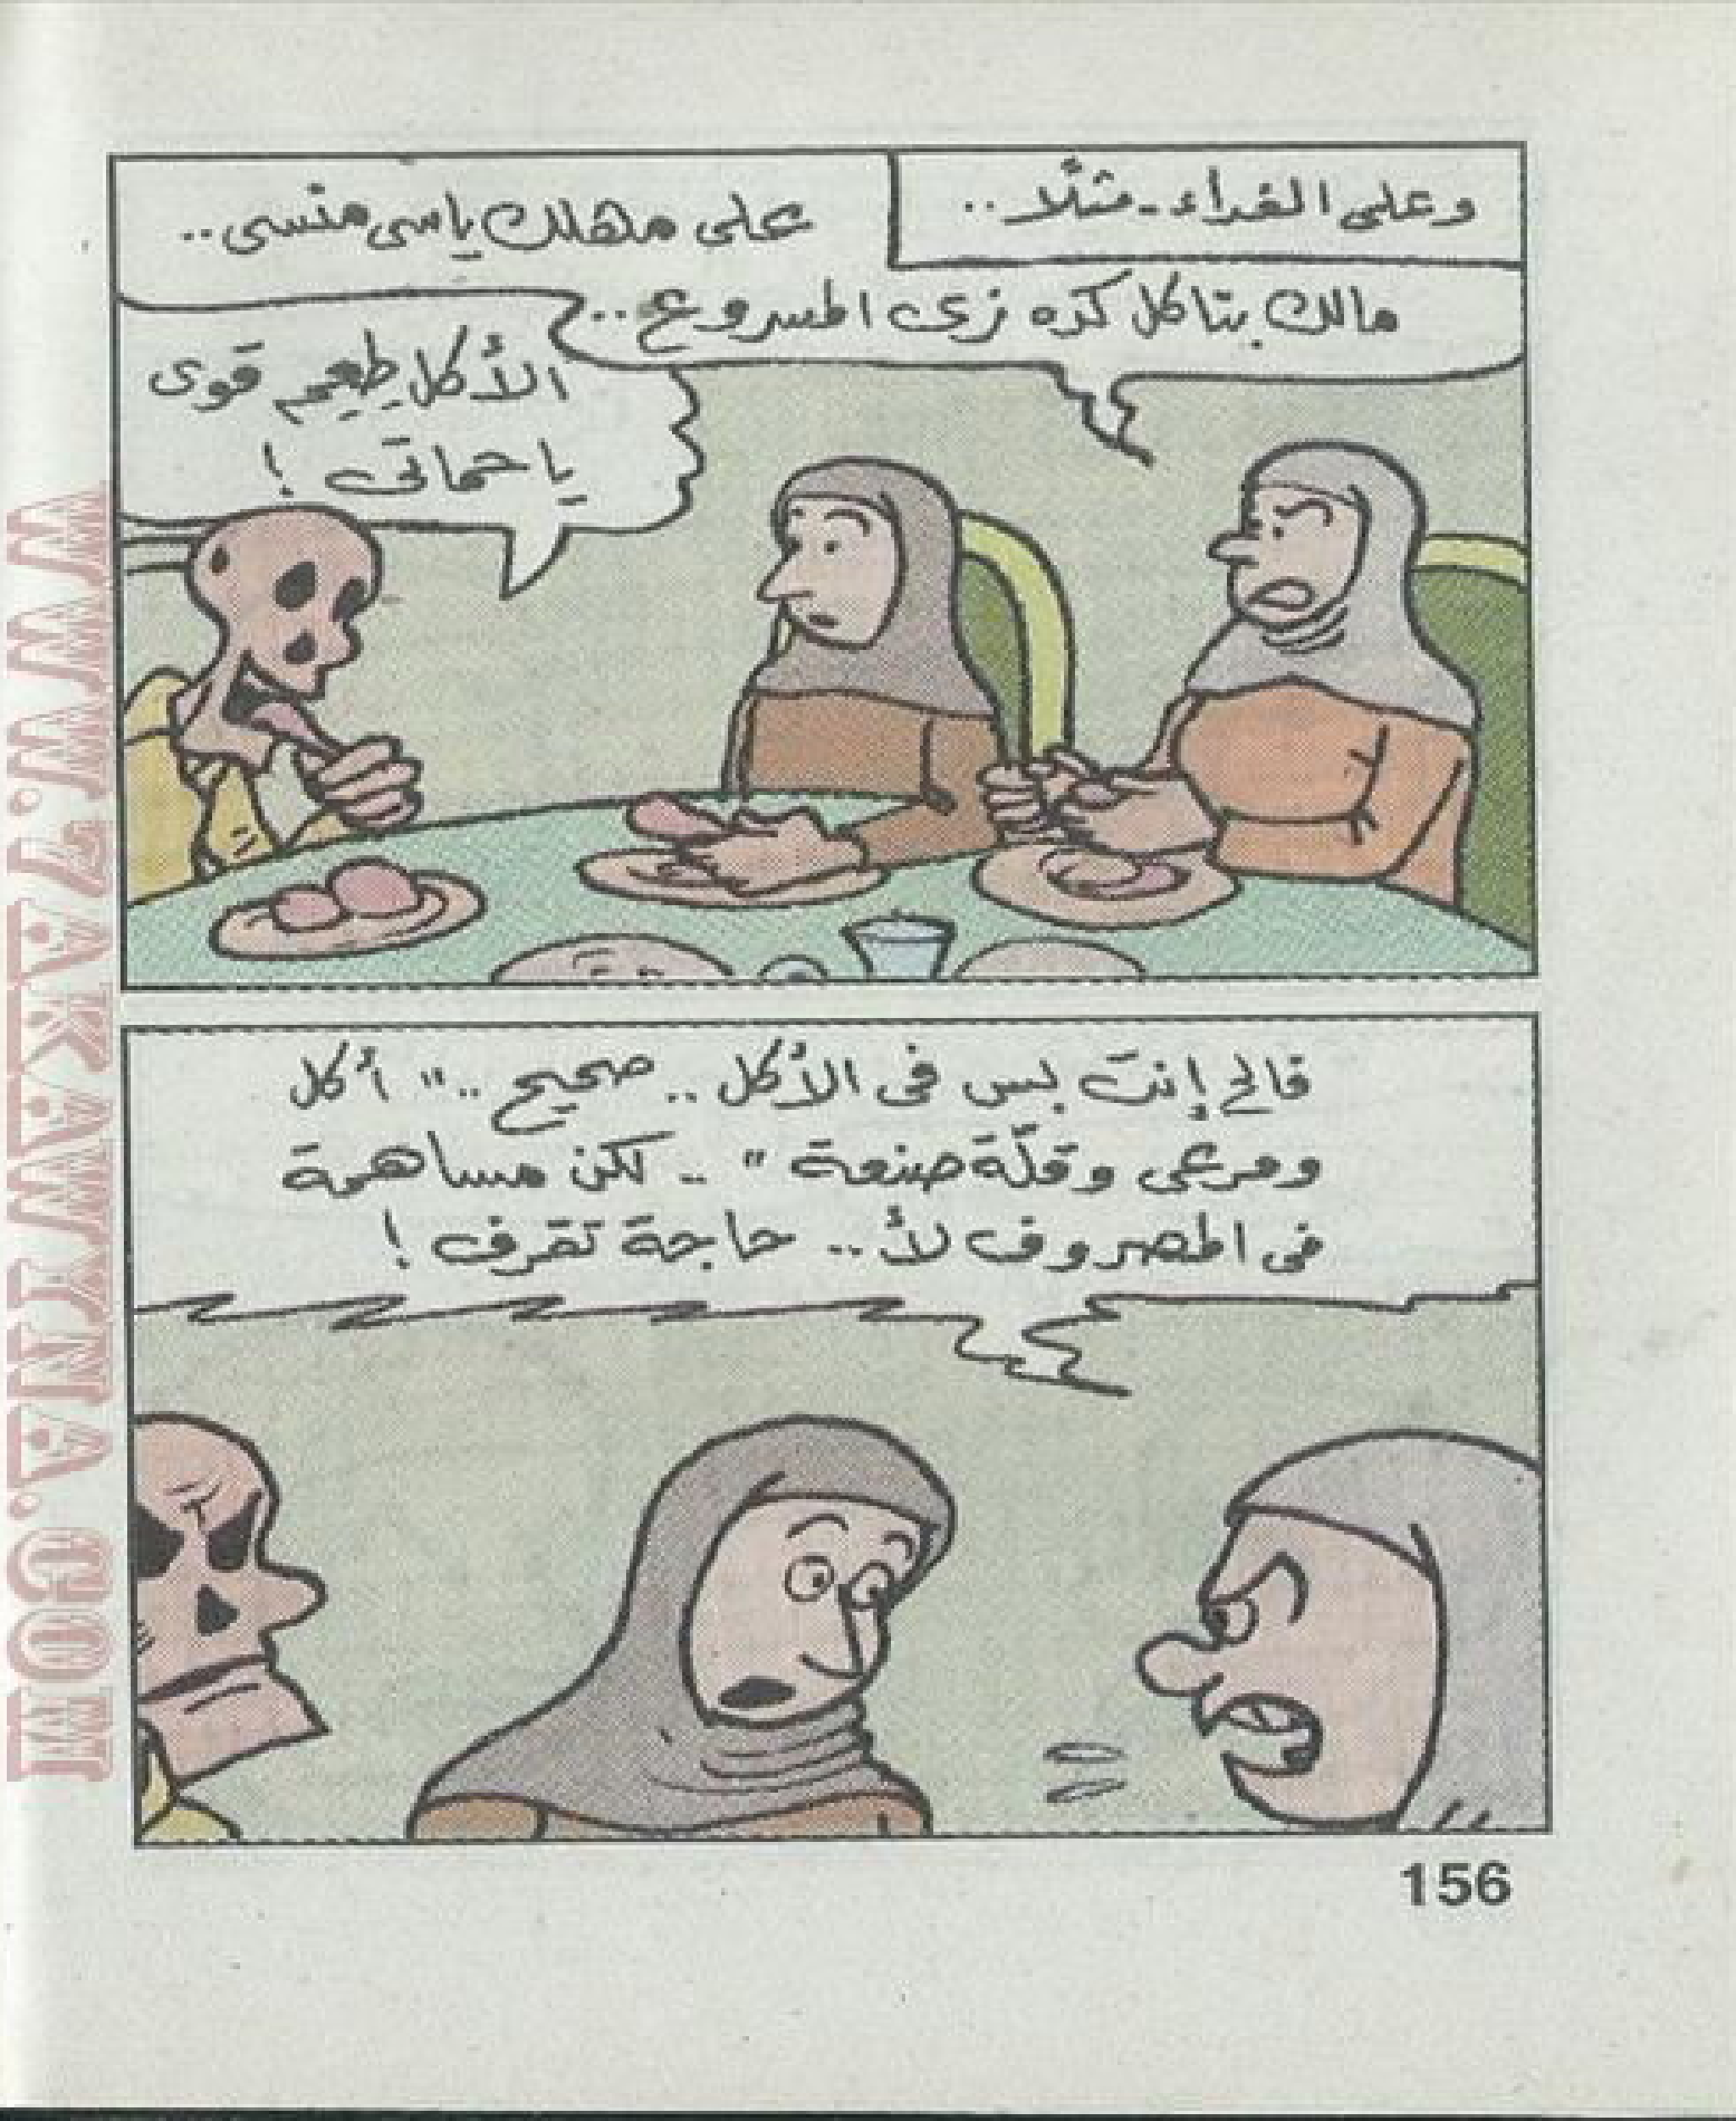 وعلى الغداء - مثلًا ..
على مهلك ياسى منسى ..
مالك بتاكل كده زى المسروع ..
الأكل طِعِم قوى
يا حماتى !
فالح إنت بس فى الأكل .. صحيح .. " أكل
ومرعى وقلّة صنعة " .. لكن مساهمة
فى المصروف لأ .. حاجة تقرف !
156
WWW.ZAKAWYNA.COM